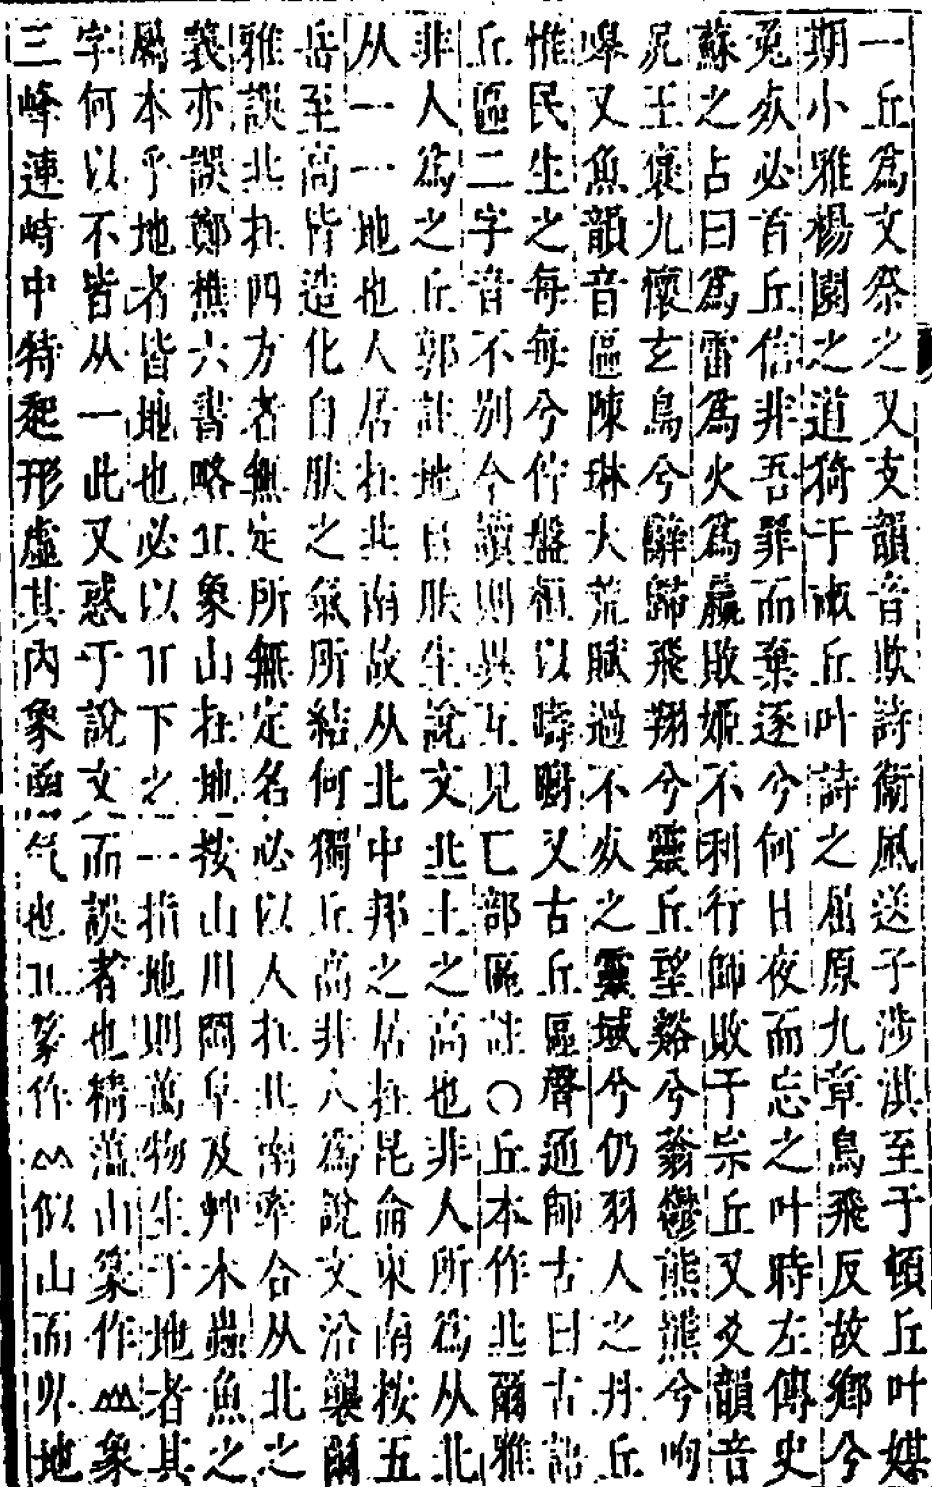 一丘爲文祭之又支韻音欺詩衞風送子涉淇至于頓丘叶媒
期小雅楊園之道猗于畝丘叶詩之屈原九章鳥飛反故鄉兮
兔𣦸必首丘信非吾罪而棄逐兮何日夜而忘之叶時左傳史
蘇之占曰爲雷爲火爲嬴敗姬不利行師敗于宗丘又爻韻音
尻王襃九懷玄鳥兮辭歸飛翔兮靈丘望谿兮蓊鬱熊熊兮呴
嘷又魚韻音區陳琳大荒賦過不𣦸之靈域兮仍羽人之丹丘
惟民生之每每兮佇盤桓以畤䠧又古丘區聲通師古曰古語
丘區二字音不別今讀則異互見匸部區註○丘本作丠爾雅
非人爲之丘郭註地自肰生說文丠土之高也非人所爲从北
从一一地也人居在丘南故从北中邦之居在昆侖東南按五
岳至高皆造化自肰之氣所結何獨丘高非人爲說文沿襲爾
雅誤北在四方者無定所無定名必以人在丘南牽合从北之
義亦誤鄭樵六書略丠象山在地按山川岡阜及艸木蟲魚之
屬本乎地者皆地也必以丌下之一指地則萬物生于地者其
字何以不皆从一此又惑于說文而誤者也橘薀山篆作山象
三峰連峙中特起形虛其內象函气也丠篆作似山而外地